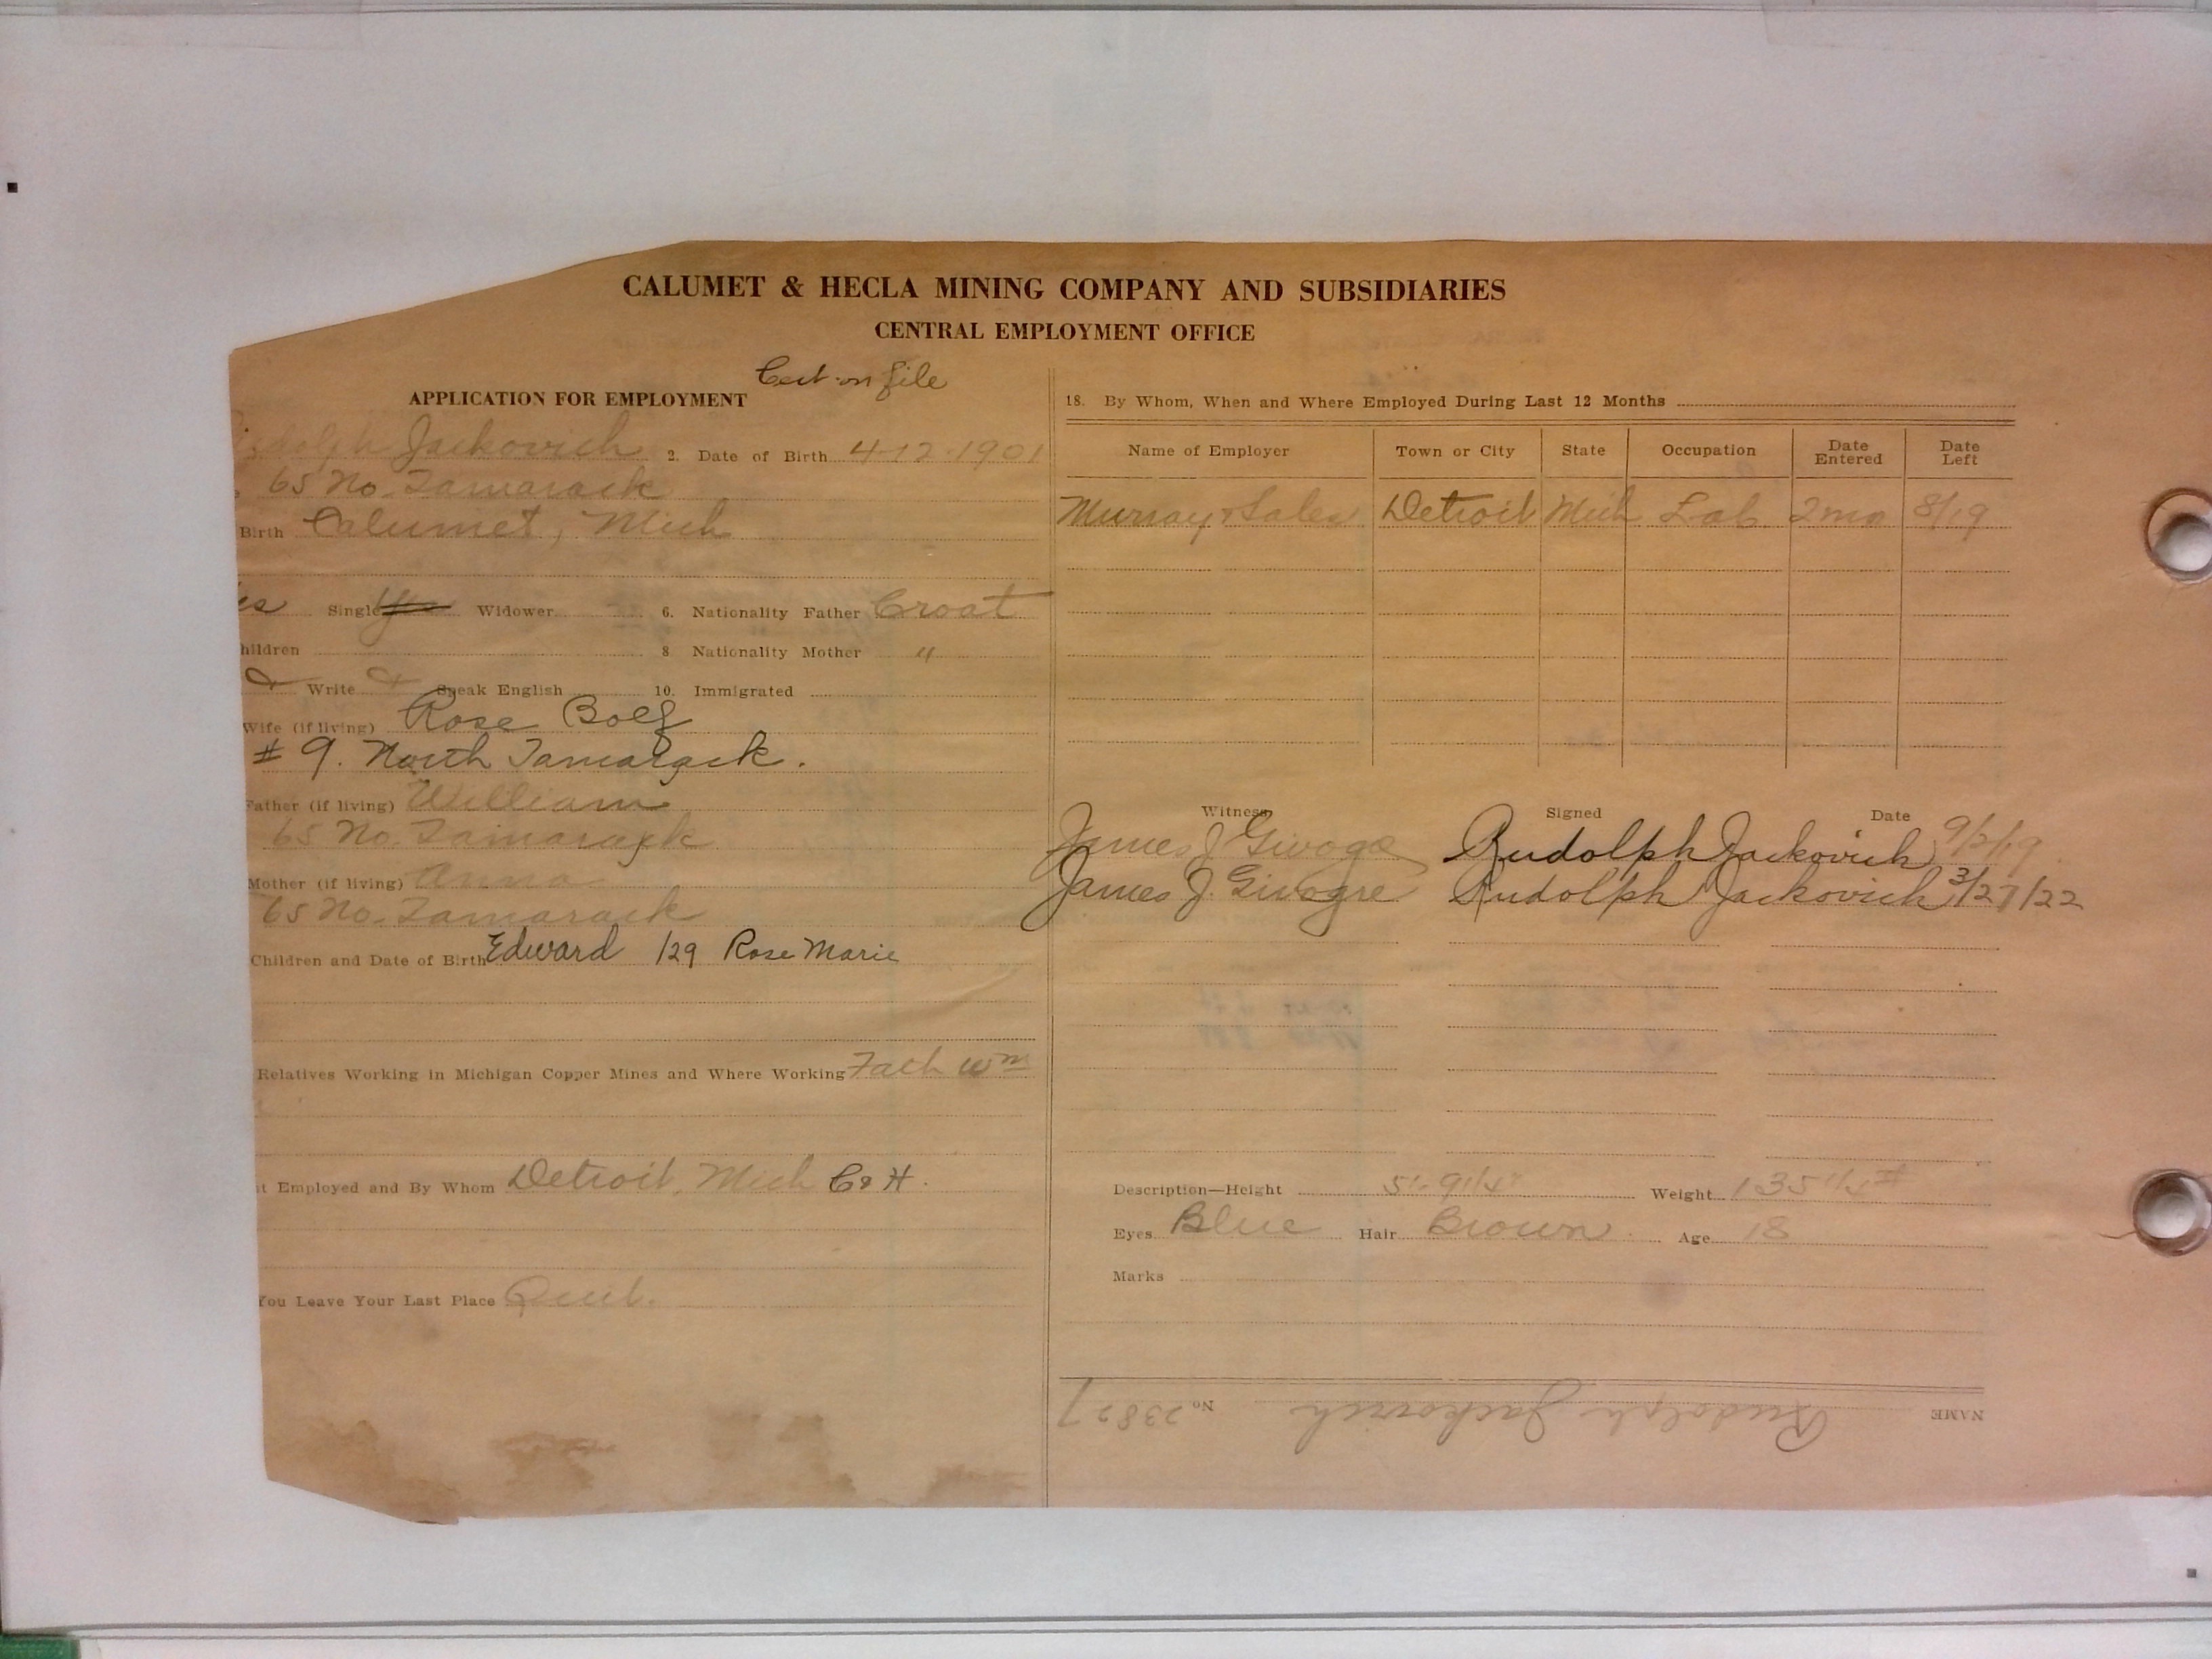 CALUMET & HECLA MINING COMPANY AND SUBSIDIARIES
CENTRAL EMPLOYMENT OFFICE
Cert on file
APPLICATION FOR EMPLOYMENT
Rudolph Jackovich 2. Date of Birth 4-12-1901
65 No. Tamarack
Birth Calumet, Mich
es Single Widower 6. Nationality Father Croat
hildren 8 Nationality Mother "
Write Speak English 10. Immigrated
Wife (if living) Rose
# 9. North Tamarack.
Father (if living) William
65 No. Tamarack
Mother (if living) Anna
65 No. Tamarack
Children and Date of Birth Edward /29 Rose Marie
Relatives Working in Michigan Copper Mines and Where Working Fath Wm
t Employed and By Whom Detroit, Mich C & H.
You Leave Your Last Place Quit.
18. By Whom, When and Where Employed During Last 12 Months
Name of Employer Town or City State Occupation Date Entered Date Left
Murray Sales Detroit Mich Lab 2mo 8/19
Witness Signed Date
James J. Rudolph Jackovich 9/2/19
James J. Rudolph Jackovich 3/27/22
Description—Height 5'-9 1/4" Weight 135 1/4 #
Eyes Blue Hair Brown Age 18
Marks
NAME Rudolph Jackovich No. 23827